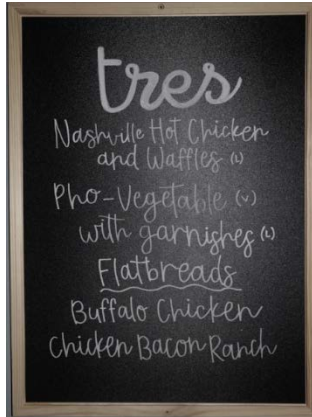 tres
Nashville Hot Chicken
and Waffles (L)
Pho-Vegetable (v)
with garnishes (L)
Flatbreads
Buffalo Chicken
Chicken Bacon Ranch